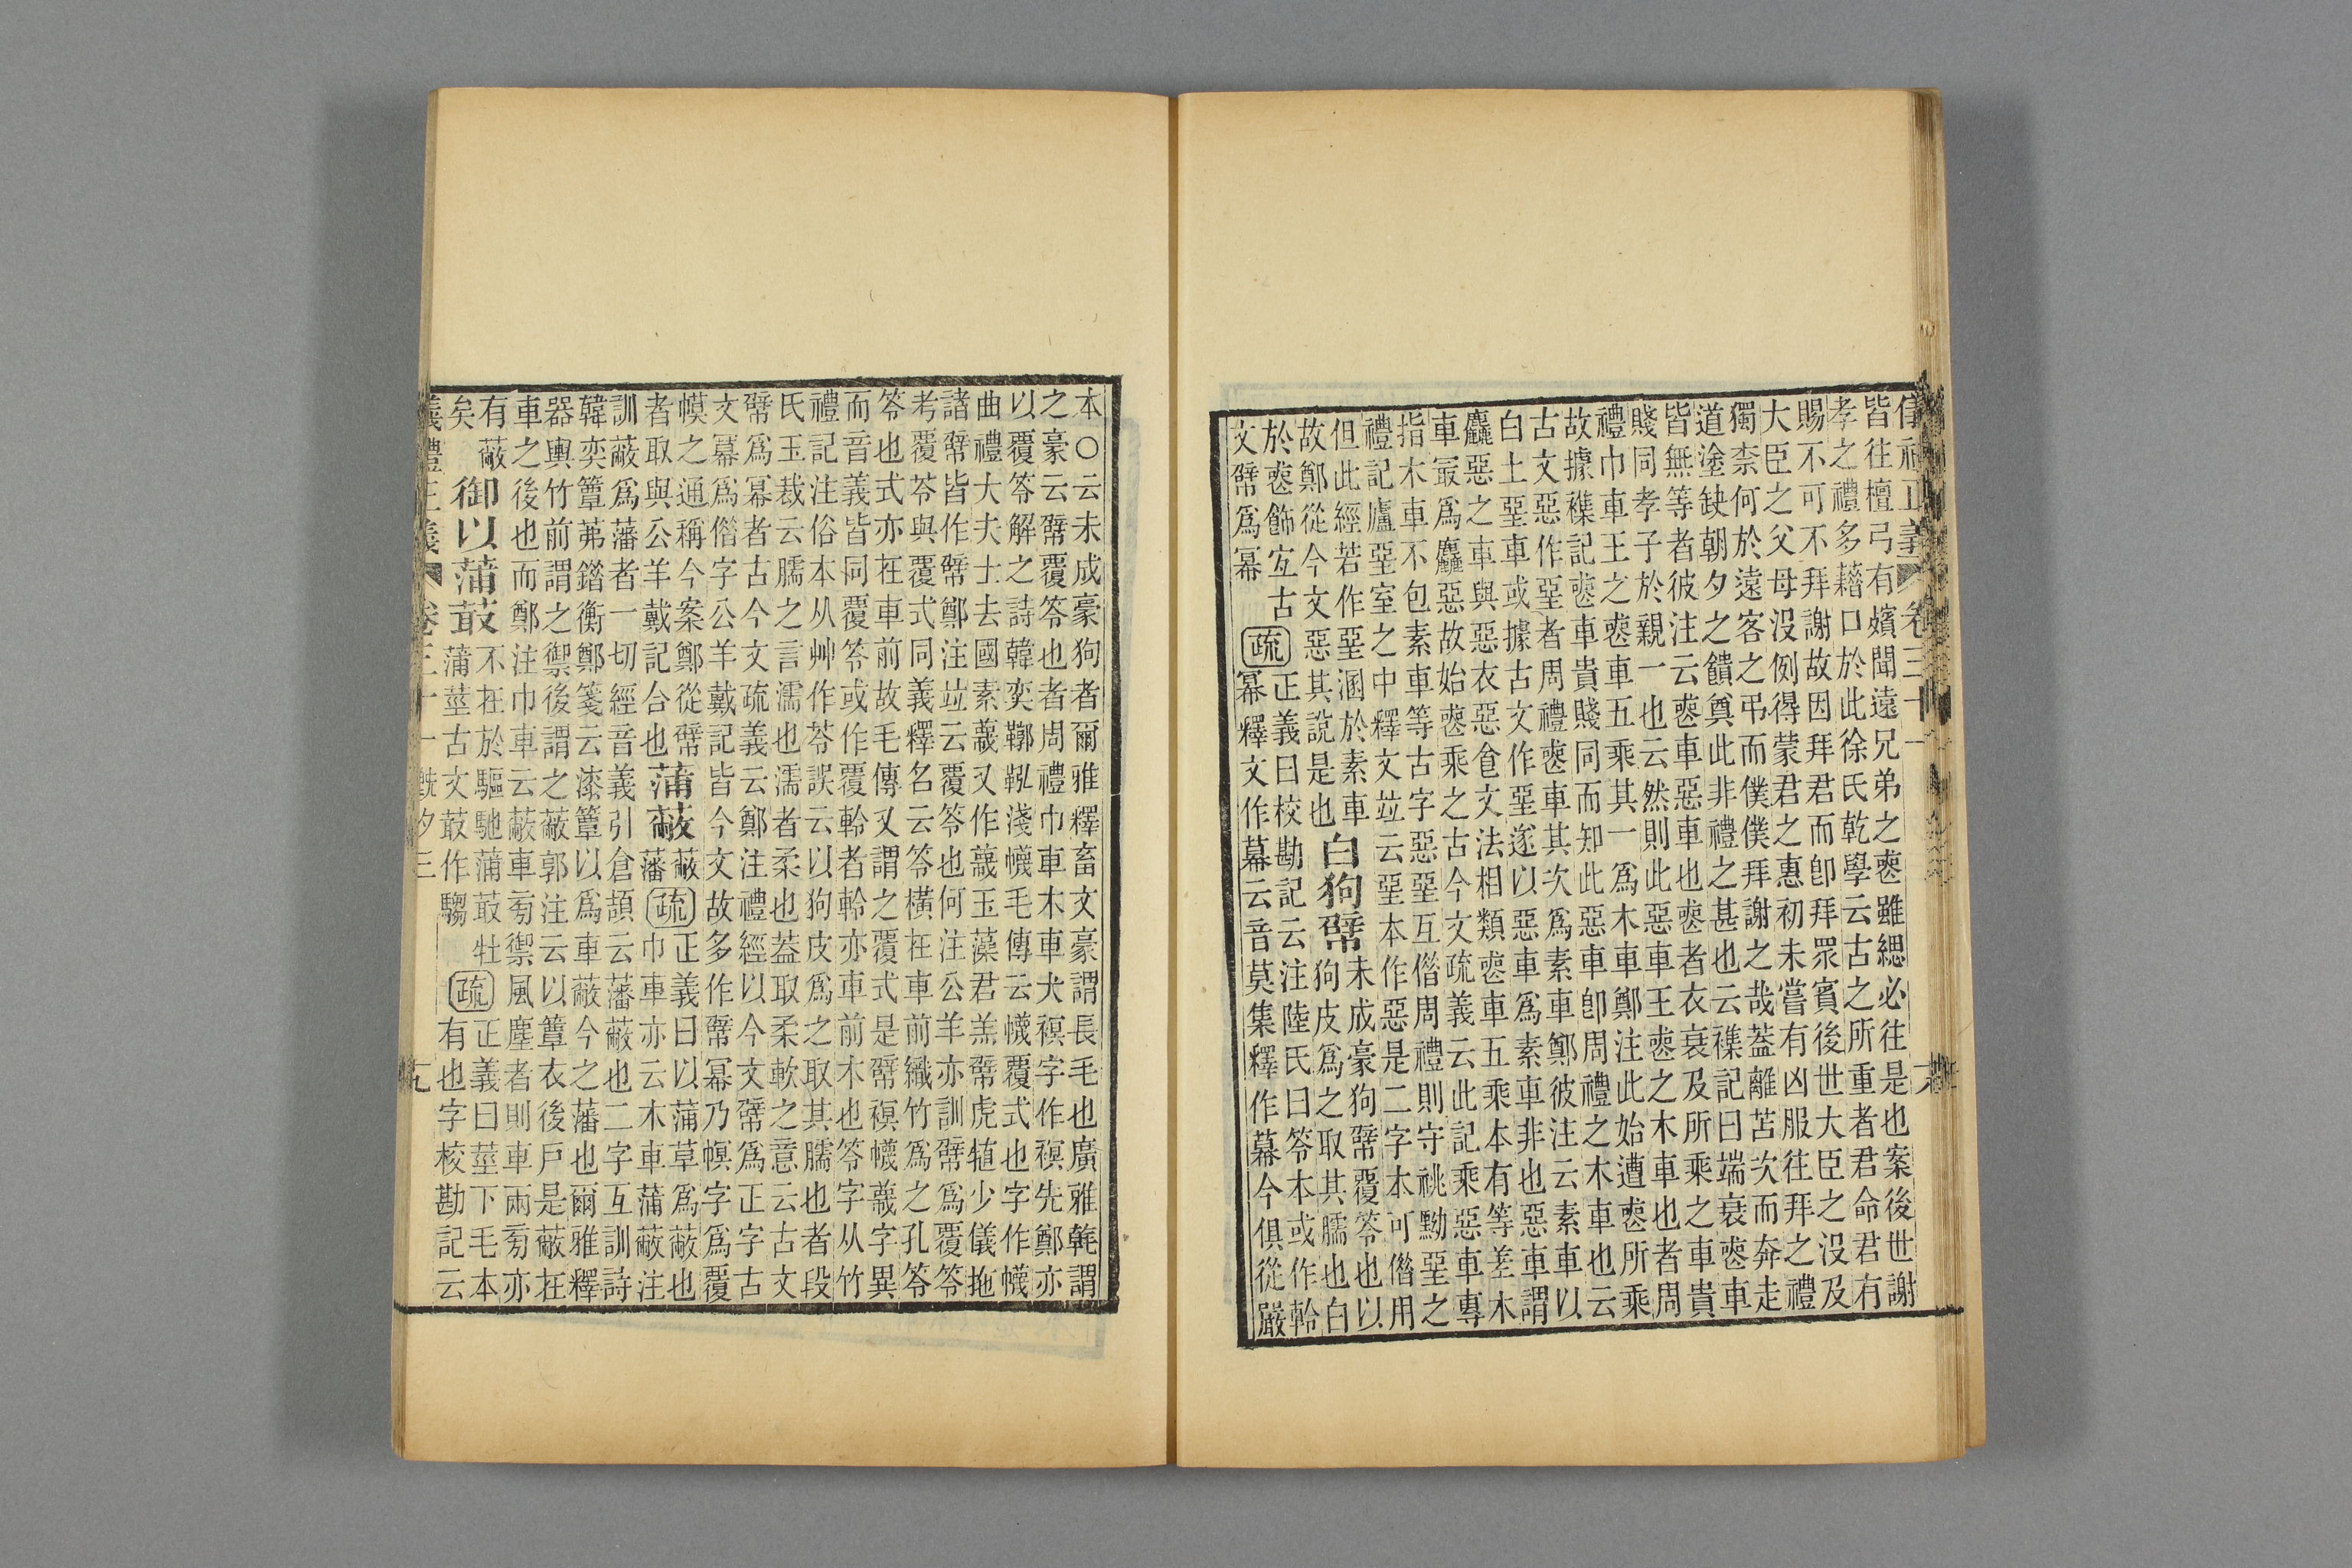 儀禮正義 卷三十一
皆往檀弓有殯聞遠兄弟之喪雖緦必往是也案後世謝
孝之禮多藉口於此徐氏乾學云古之所重者君命君有
賜不可不拜謝故因拜君而卽拜眾賓後世大臣之没及
大臣之父母没例得蒙君之惠初未嘗有凶服往拜之禮
獨柰何於遠客之弔而僕僕拜謝之哉蓋離苫次而奔走
道塗缺朝夕之饋奠此非禮之甚也云襍記曰端衰喪車
皆無等者彼注云喪車惡車也喪者衣衰及所乘之車貴
賤同孝子於親一也云然則此惡車王喪之木車也者周
禮巾車王之喪車五乘其一爲木車鄭注此始遭喪所乘
故據襍記喪車貴賤同而知此惡車卽周禮之木車也云
古文惡作堊者周禮喪車其次爲素車鄭彼注云素車以
白土堊車或據古文作堊遂以惡車爲素車非也惡車謂
麤惡之車與惡衣惡食文法相類喪車五乘本有等差木
車最爲麤惡故始喪乘之古今文疏義云此記乘惡車專
指木車不包素車等古字惡堊互偕周禮則守祧黝堊之
禮記廬堊室之中釋文竝云堊本作惡是二字本可偕用
但此經若作堊溷於素車
故鄭從今文惡其說是也
白狗幦
未成豪狗幦覆笭也以
狗皮爲之取其臑也白
於喪飾宐古
文幦爲幂
疏
正義曰校勘記云注陸氏曰笭本或作軨
幂釋文作幕云音莫集釋作幕今俱從嚴
本○云未成豪狗者爾雅釋畜文豪謂長毛也廣雅𣯛謂
之豪云幦覆笭也者周禮巾車木車犬䙪字作䙪先鄭亦
以覆笭解之詩韓奕鞹鞃淺幭毛傳云幭覆式也字作幭
曲禮大夫士去國素𥱵又作𥱵玉藻君羔幦虎犆少儀拖
諸幦皆作幦鄭注竝云覆笭也何注公羊亦訓幦爲覆笭
考覆笭與覆式同義釋名云笭橫在車前織竹爲之孔笭
笭也式亦在車前故毛傳又謂之覆式是幦䙪幭𥱵字異
而音義皆同覆笭或作覆軨者軨亦車前木也笭字从竹
禮記注俗本从艸作苓誤云以狗皮爲之取其臑也者段
氏玉裁云臑之言濡也濡者柔也蓋取柔軟之意云古文
幦爲幂者古今文疏義云鄭注禮經以今文幦爲正字古
文幂爲偕字公羊戴記皆今文故多作幦幂乃幎字爲覆
幎之通稱今案鄭從幦
者取與公羊戴記合也
蒲蔽
蔽
藩
疏
正義曰以蒲草爲蔽也
巾車亦云木車蒲蔽注
訓蔽爲藩者一切經音義引倉頡云藩蔽也二字互訓詩
韓奕簟茀錯衡鄭箋云漆簟以爲車蔽今之藩也爾雅釋
器輿竹前謂之禦後謂之蔽郭注云以簟衣後戶是蔽在
車之後也而鄭注巾車云蔽車旁禦風塵者則車兩旁亦
有蔽
矣
御以蒲菆
不在於驅馳蒲菆牡
蒲莖古文菆作騶
疏
正義曰莖下毛本
有也字校勘記云
儀禮正義 卷三十一 旣夕三